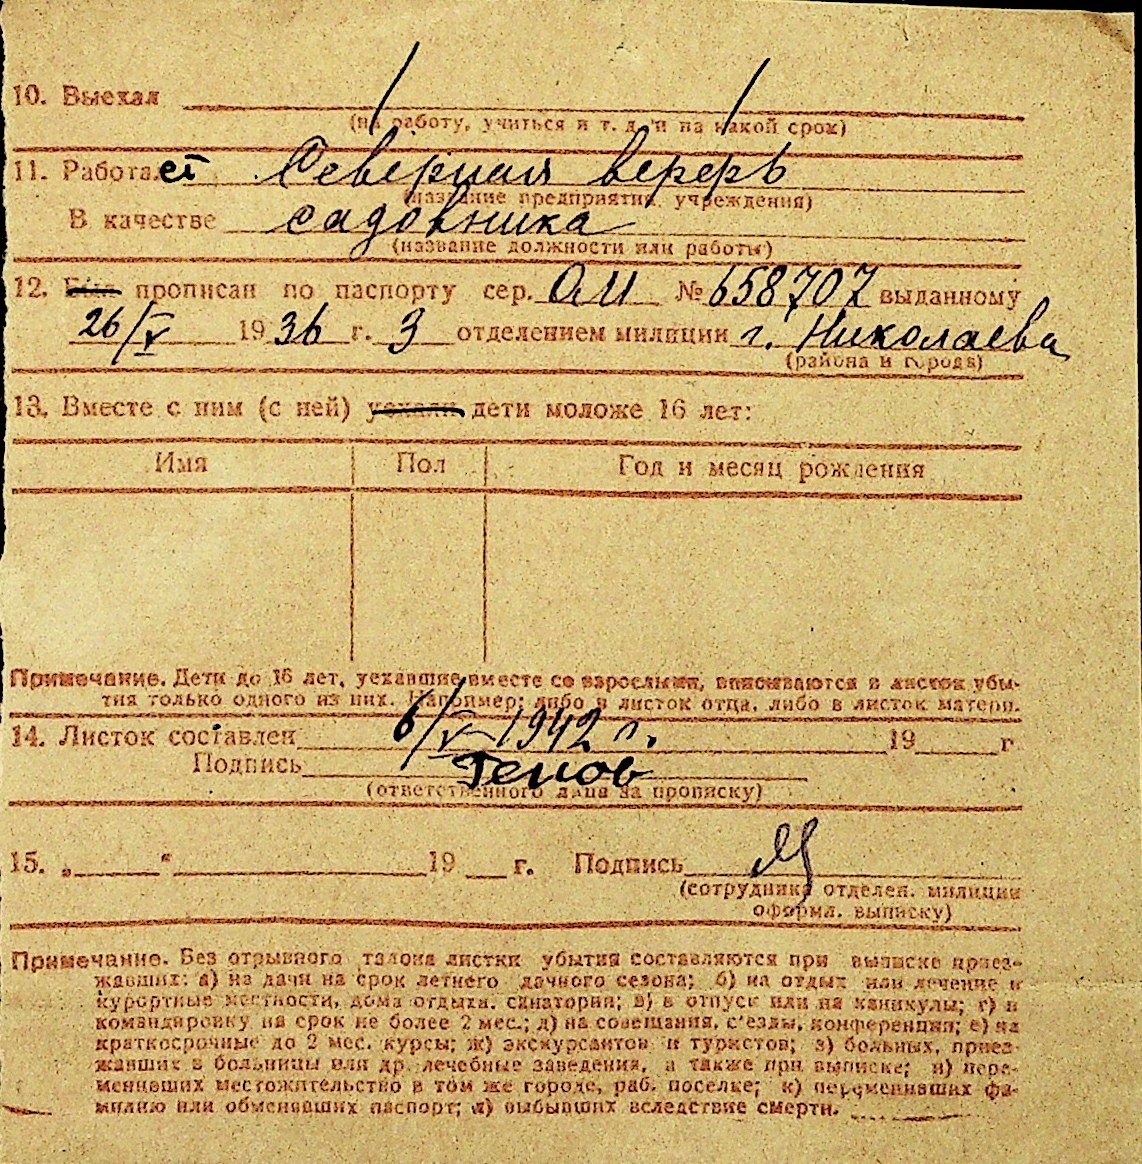 10. Выехал
(на работу, учиться и т. д. и на какой срок)
11. Работает Северная верфь
(название предприятия, учреждения)
В качестве садовника
(название должности или работы)
12. Был прописан по паспорту сер. ОМ № 658707 выданному
26/V 1936 г. 3 отделением милиции г. Николаева
(района и города)
13. Вместе с ним (с ней) уехали дети моложе 16 лет:
Имя Пол Год и месяц рождения
Примечание. Дети до 16 лет, уехавшие вместе со взрослыми, вписываются в листок убы-
тия только одного из них. Например: либо в листок отца, либо в листок матери.
14. Листок составлен 6/V 1942 г. 19 г.
Подпись
(ответственного лица за прописку)
15. „ “ 19 г. Подпись
(сотрудника отделен. милиции
оформл. выписку)
Примечание. Без отрывного талона листки убытия составляются при выписке приез-
жавших: а) на дачи на срок летнего дачного сезона; б) на отдых или лечение в
курортные местности, дома отдыха, санатории; в) в отпуск или на каникулы; г) в
командировку на срок не более 2 мес.; д) на совещания, с'езды, конференции; е) на
краткосрочные до 2 мес. курсы; ж) экскурсантов и туристов; з) больных, приез-
жавших в больницы или др. лечебные заведения, а также при выписке; и) пере-
менивших местожительство в том же городе, раб. поселке; к) переменивших фа-
милию или обменявших паспорт; л) выбывших вследствие смерти.